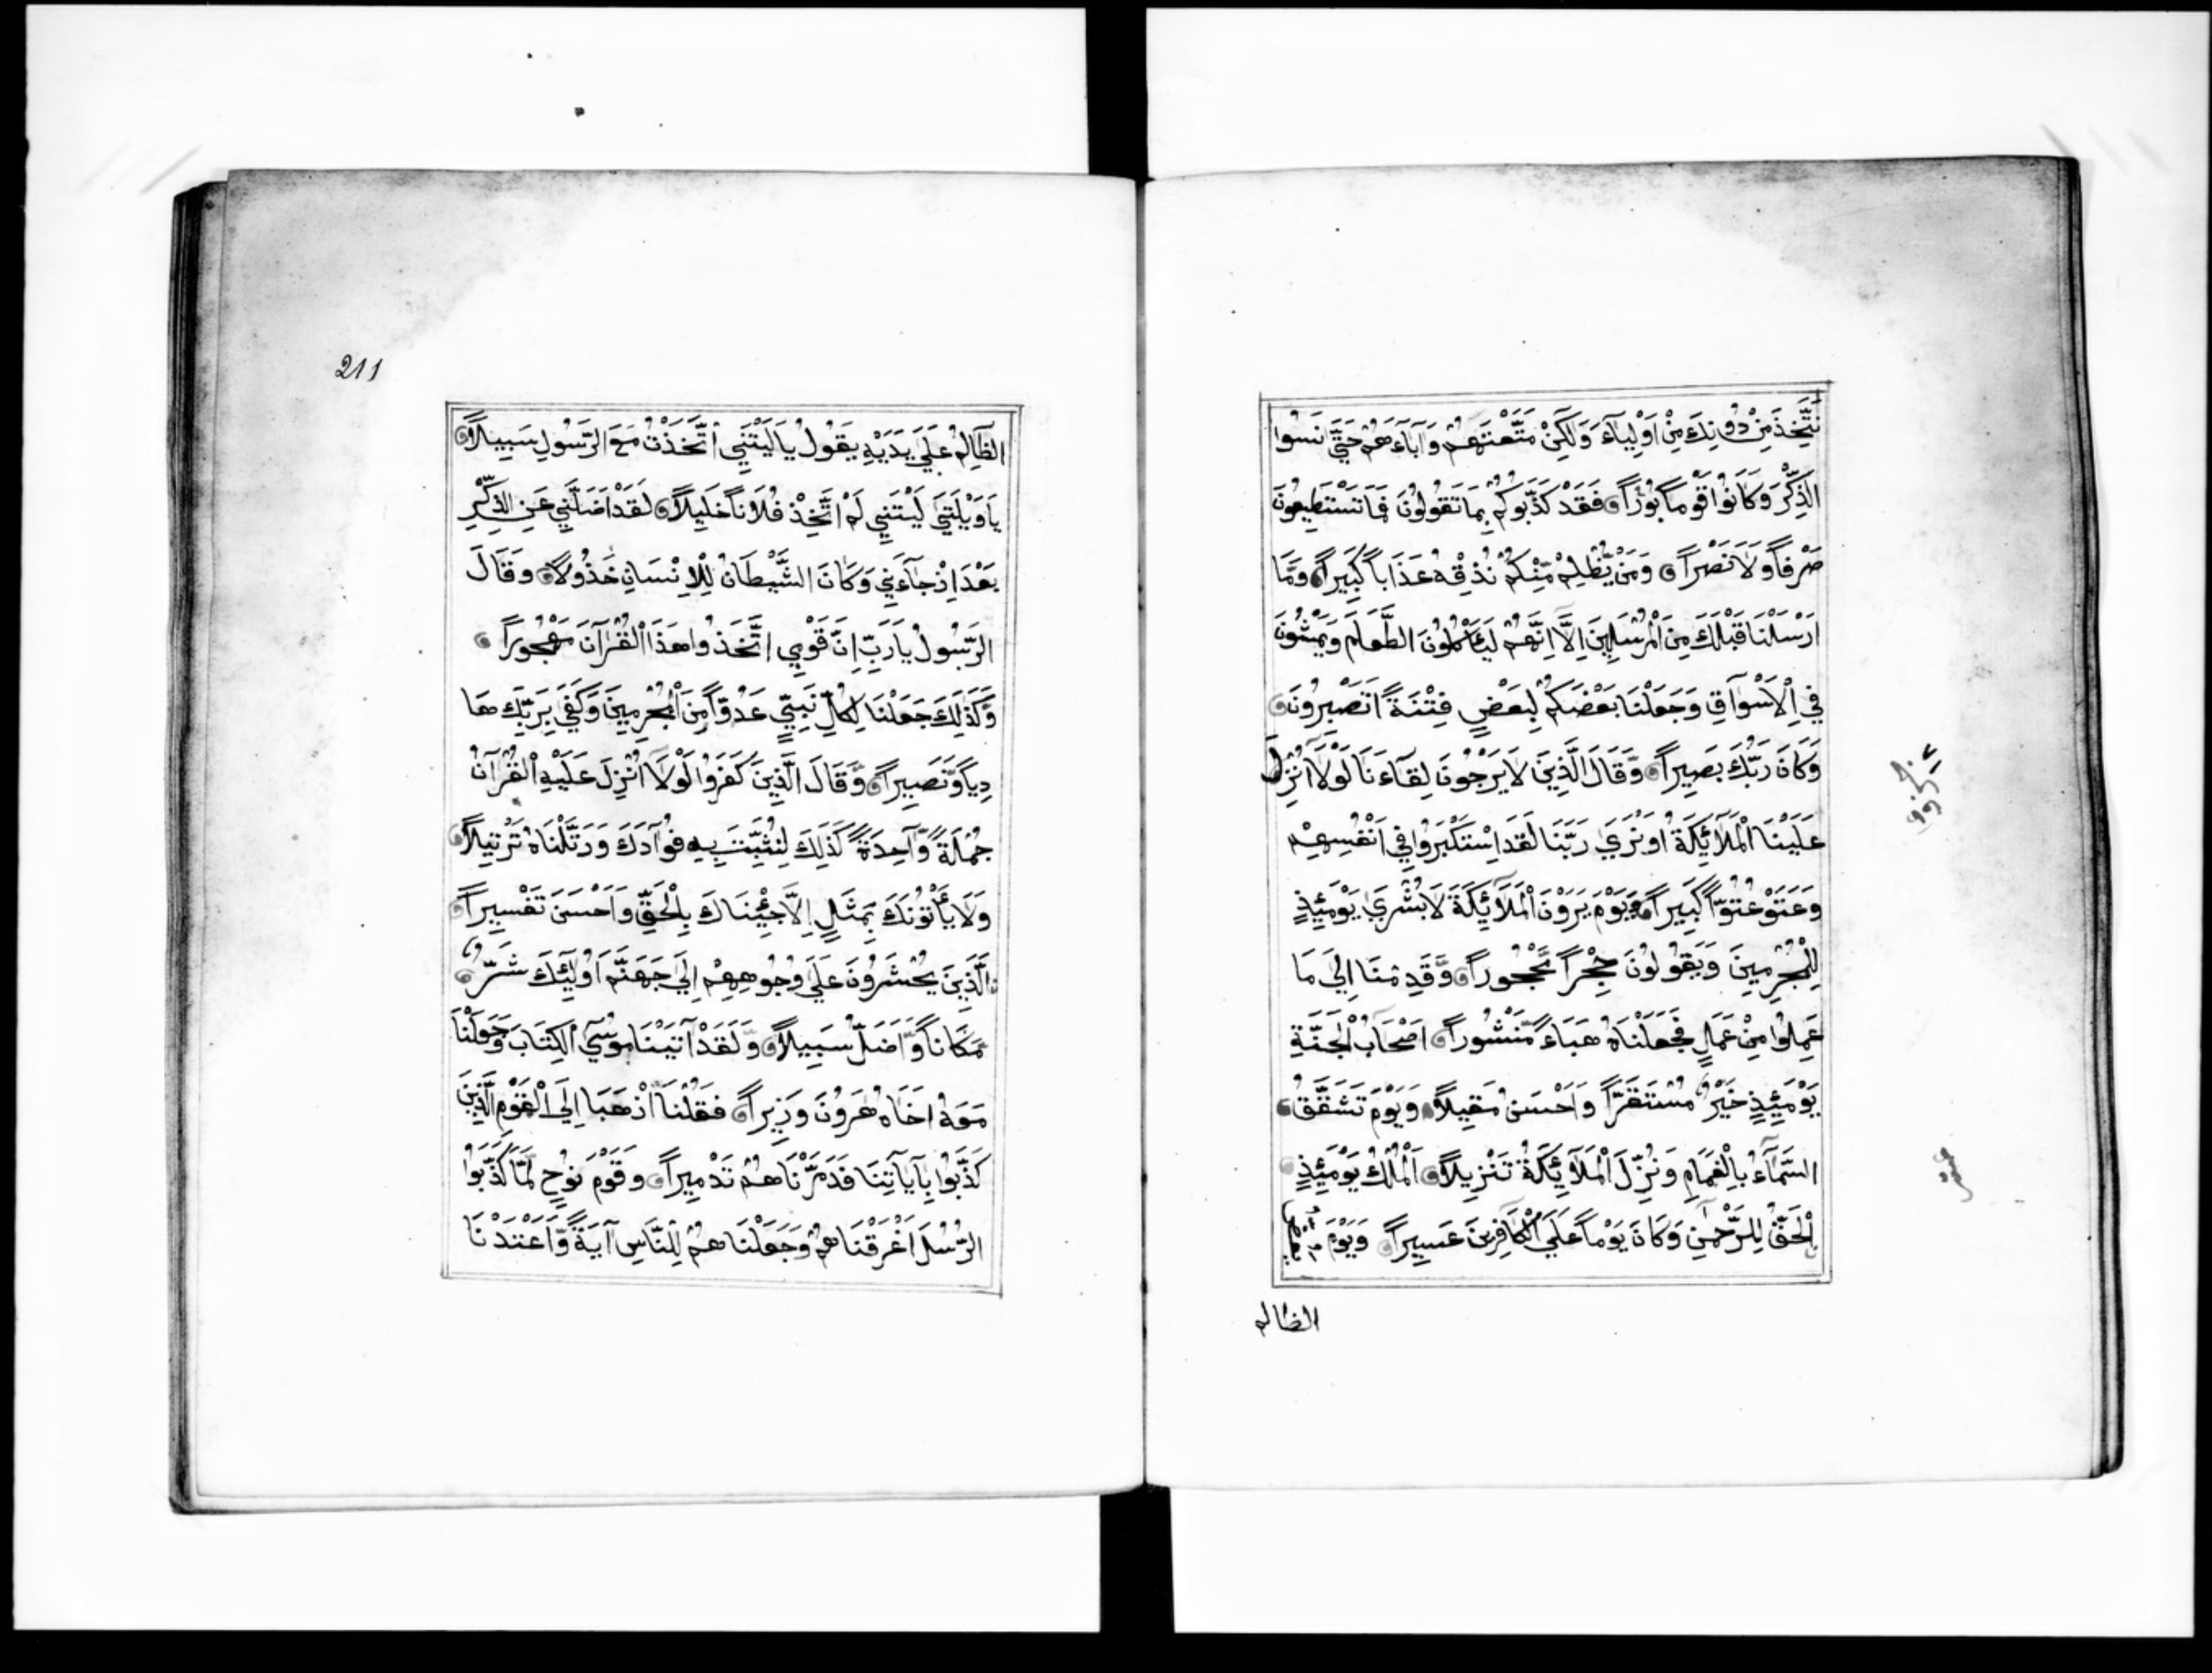 نَتَّخِذَ مِنْ دُونِكَ مِنْ اَوْلِيَآءَ وَلَكِنْ مَتَّعْتَهُمْ وَآبَآءَهُمْ حَتَّي نَسُوا
الذِّكْرَ وَكَانُوا قَوْماً بُوْراً فَقَدْ كَذَّبُوكُمْ بِمَا تَقُولُونَ فَمَا تَسْتَطِيعُونَ
صَرْفاً وَلَا نَصْراً وَمَنْ يَّظْلِمْ مِّنْكُمْ نُذِقْهُ عَذَاباً كَبِيراً وَمَّا
اَرْسَلْنَا قَبْلَكَ مِنَ الْمُرْسَلِينَ اِلَّا اِنَّهُمْ لَيَأْكُلُونَ الطَّعَامَ وَيَمْشُونَ
فِي اِلْاَسْوَاقِ وَجَعَلْنَا بَعْضَكُمْ لِبَعْضٍ فِتْنَةً اَتَصْبِرُونَ
وَكَانَ رَبُّكَ بَصِيراً وَّقَالَ الَّذِينَ لَا يَرْجُونَ لِقَآءَنَا لَوْلَآ اُنْزِلَ
عَلَيْنَا الْمَلَآئِكَةُ اَوْ نَرَي رَبَّنَا لَقَدِ اسْتَكْبَرُوا فِي اَنْفُسِهِمْ
وَعَتَوْ عُتُوّاً كَبِيراً يَوْمَ يَرَوْنَ الْمَلَآئِكَةَ لَا بُشْرَي يَوْمَئِذٍ
لِلْمُجْرِمِينَ وَيَقُولُونَ حِجْراً مَّحْجُوراً وَّقَدِمْنَا اِلَيَ مَا
عَمِلُوا مِنْ عَمَلٍ فَجَعَلْنَاهُ هَبَآءً مَّنْشُوراً اَصْحَابُ الْجَنَّةِ
يَوْمَئِذٍ خَيْرٌ مُسْتَقَرّاً وَاَحْسَنُ مَقِيلاً وَيَوْمَ تَشَقَّقُ
السَّمَآءُ بِالْغَمَامِ وَنُزِّلَ الْمَلَآئِكَةُ تَنْزِيلاً اَلْمُلْكُ يَوْمَئِذٍ
الْحَقُّ لِلرَّحْمٰنِ وَكَانَ يَوْماً عَلَي الْكَافِرِينَ عَسِيراً وَيَوْمَ يَعَضُّ
الظالم
عشر
211
الظَّالِمُ عَلَيَ يَدَيْهِ يَقُولُ يَا لَيْتَنِي اتَّخَذْتُ مَعَ الرَّسُولِ سَبِيلاً
يَا وَيْلَتَيَ لَيْتَنِي لَمْ اَتَّخِذْ فُلَاناً خَلِيلاً لَقَدْ اَضَلَّنِي عَنِ الذِّكْرِ
بَعْدَ اِذْ جَآءَنِي وَكَانَ الشَّيْطَانُ لِلْاِنْسَانِ خَذُولاً وَقَالَ
الرَّسُولُ يَا رَبِّ اِنَّ قَوْمِي اتَّخَذُوا هَذَا الْقُرْآنَ مَهْجُوراً
وَّكَذَلِكَ جَعَلْنَا لِكُلِّ نَبِيٍّ عَدُوّاً مِّنَ الْمُجْرِمِينَ وَكَفَي بِرَبِّكَ هَا
دِياً وَّنَصِيراً وَّقَالَ الَّذِينَ كَفَرُوا لَوْلَا اُنْزِلَ عَلَيْهِ الْقُرْآنُ
جُمْلَةً وَّاحِدَةً كَذَلِكَ لِنُثَبِّتَ بِهِ فُوآدَكَ وَرَتَّلْنَاهُ تَرْتِيلاً
وَلَا يَأْتُونَكَ بِمَثَلٍ اِلَّا جِئْنَاكَ بِالْحَقِّ وَاَحْسَنَ تَفْسِيراً
اَلَّذِينَ يُحْشَرُونَ عَلَي وُجُوهِهِمْ اِلَي جَهَنَّمَ اُولَئِكَ شَرٌّ
مَّكَاناً وَّاَضَلُّ سَبِيلاً وَّلَقَدْ آتَيْنَا مُوسَي الْكِتَابَ وَجَعَلْنَا
مَعَهُ اَخَاهُ هَرُونَ وَزِيراً فَقُلْنَا اذْهَبَا اِلَي الْقَوْمِ الَّذِينَ
كَذَّبُوا بِآيَاتِنَا فَدَمَّرْنَاهُمْ تَدْمِيراً وَقَوْمَ نُوْحٍ لَمَّا كَذَّبُوا
الرُّسُلَ اَغْرَقْنَاهُمْ وَجَعَلْنَاهُمْ لِلنَّاسِ آيَةً وَّاَعْتَدْنَا